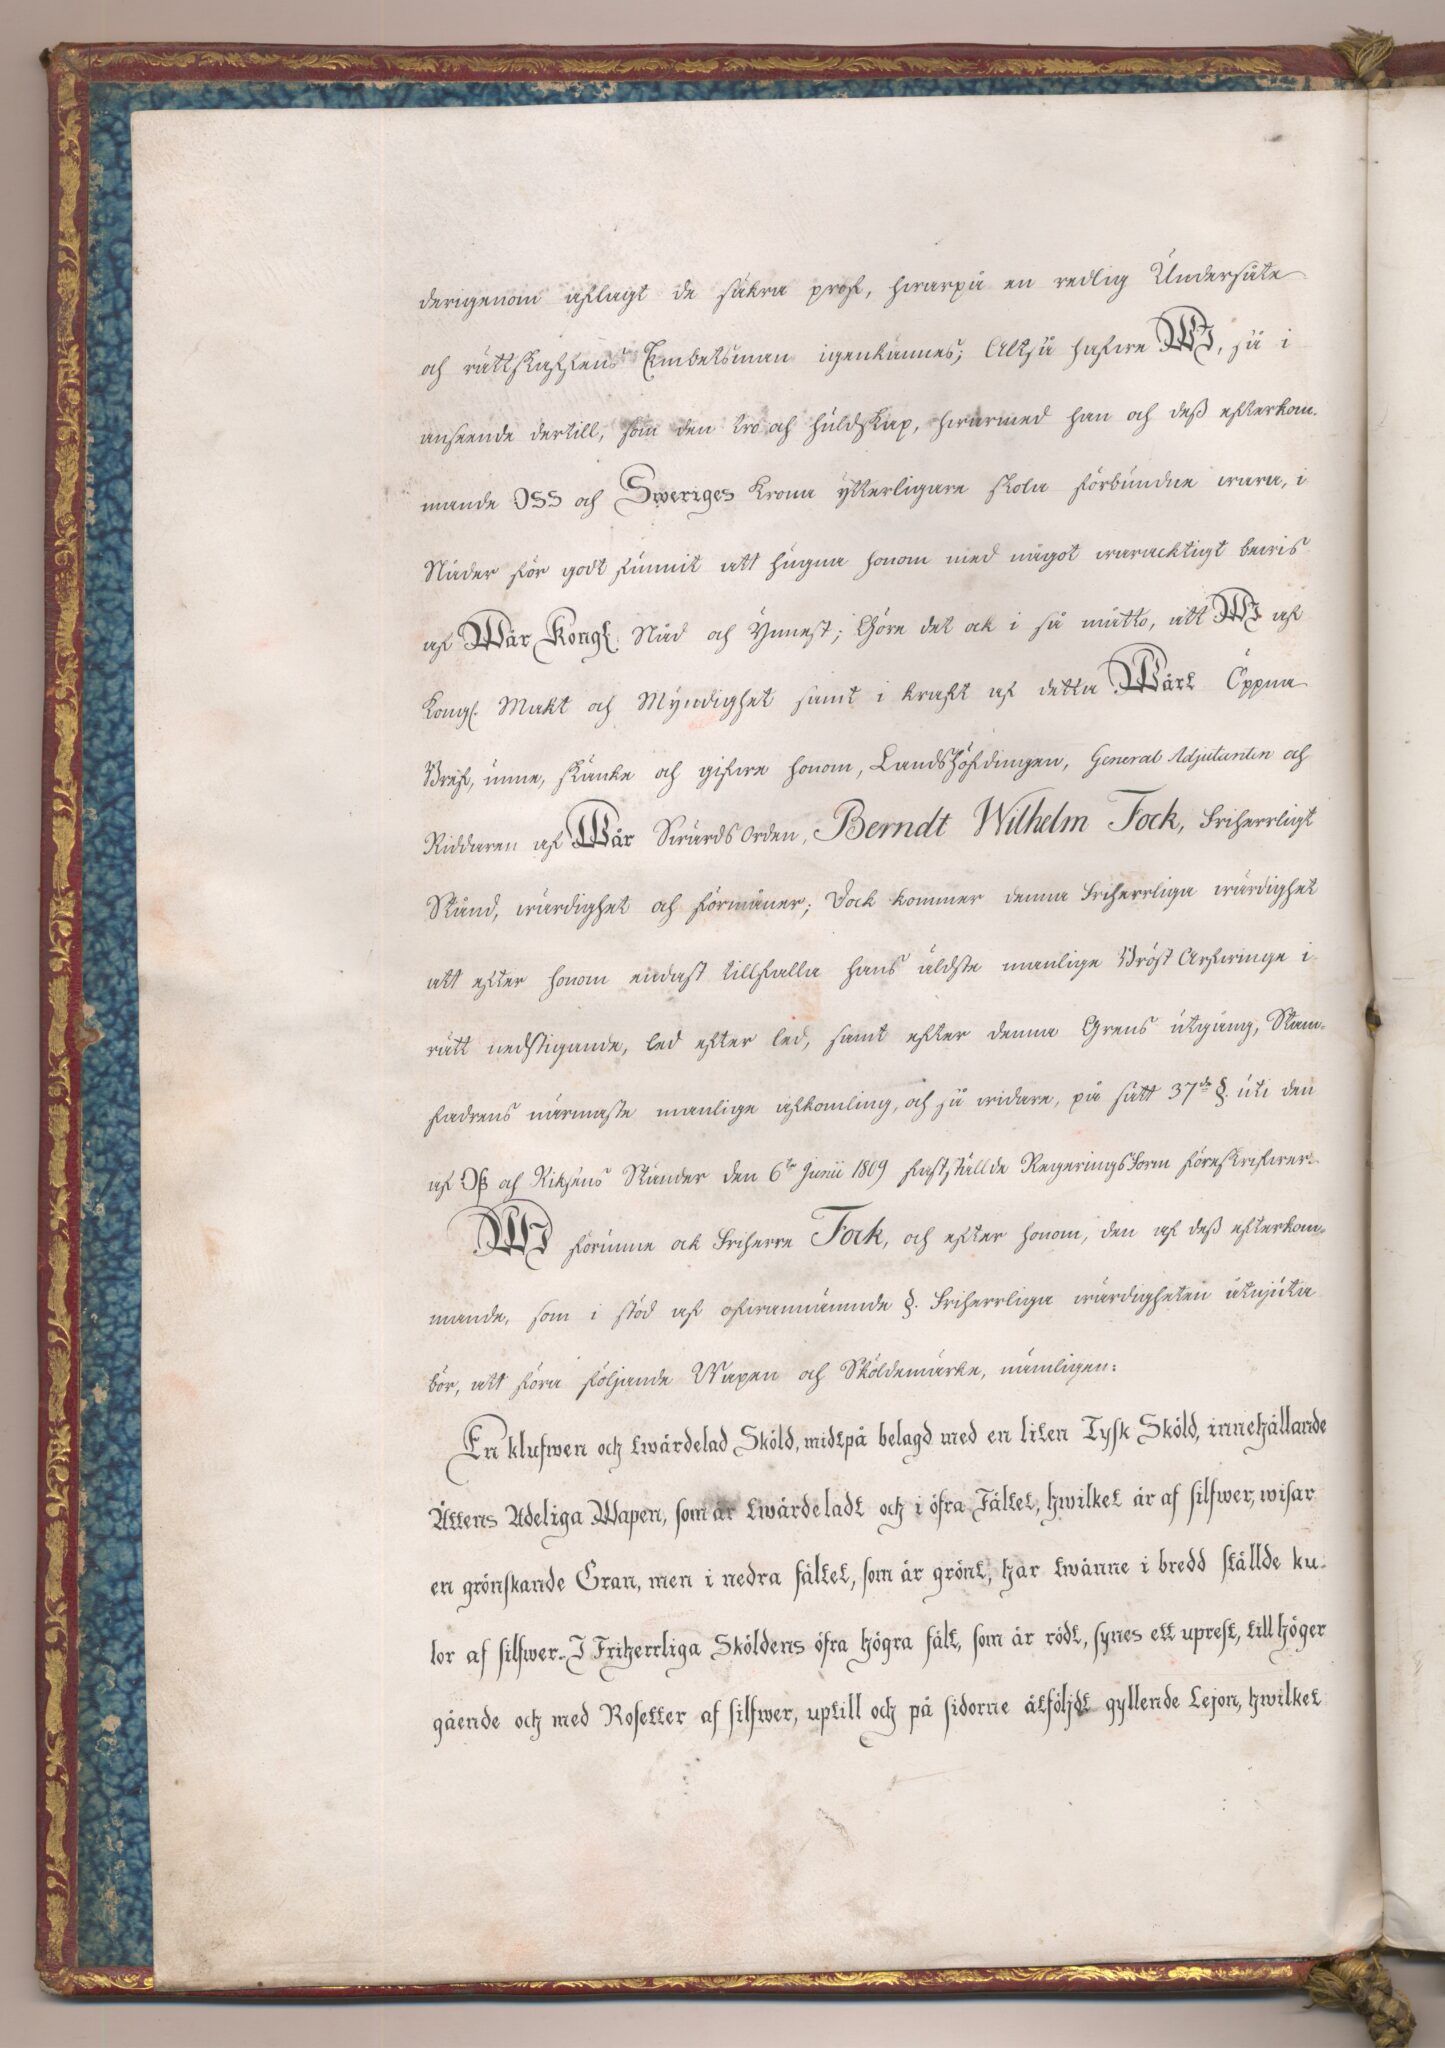 derigenom aflagt de säkra prof, hwarpå en redlig Undersåte
och rättskaffens Embetsman igenkännes; Altså hafwe WI, så i
anseende dertill, som den tro och huldskap, hwarmed han och deß efterkom-
mande OSS och Sweriges Krona ytterligare skola förbundne wara, i
Nåder för godt funnit att hugna honom med något waracktigt bewis
af Wår Kongl. Nåd och Ynnest; Göre det ock i så måtto, att WI af
Kongl. Makt och Myndighet samt i kraft af detta Wårt Öppna
Bref, unne, skänke och gifwe honom, Landshöfdingen, General Adjutanten och
Riddaren af Wår Swärds Orden, Berndt Wilhelm Fock, Friherrligt
Stånd, wärdighet och förmåner; Dock kommer denna Friherrliga wärdighet
att efter honom endast tillfalla hans äldste manlige Bröst Arfwinge i
rätt nedstigande, led efter led, samt efter denna Grens utgång, Stam-
fadrens närmaste manlige afkomling, och så widare, på sätt 37de §. uti den
af Oß och Riksens Ständer den 6te Junii 1809 fastställde Regerings Form föreskrifwer.
WI förunne ock Friherre Fock, och efter honom, den af deß efterkom-
mande, som i stöd af ofwannämnde §. Friherrliga wärdigheten åtnjuta
bör, att föra följande Wapen och Sköldemärke, nämligen:
En klufwen och twärdelad Sköld, midtpå belagd med en liten Tysk Sköld, innehållande
Ättens Adeliga Wapen, som är twärdeladt och i öfra Fältet, hwilket är af silfwer, wisar
en grönskande Gran, men i nedra fältet, som är grönt, har twänne i bredd ställde ku-
lor af silfwer. I Friherrliga Sköldens öfra högra fält, som är rödt, synes ett uprest, till höger
gående och med Rosetter af silfwer, uptill och på sidorne åtföljdt gyllende Lejon, hwilket